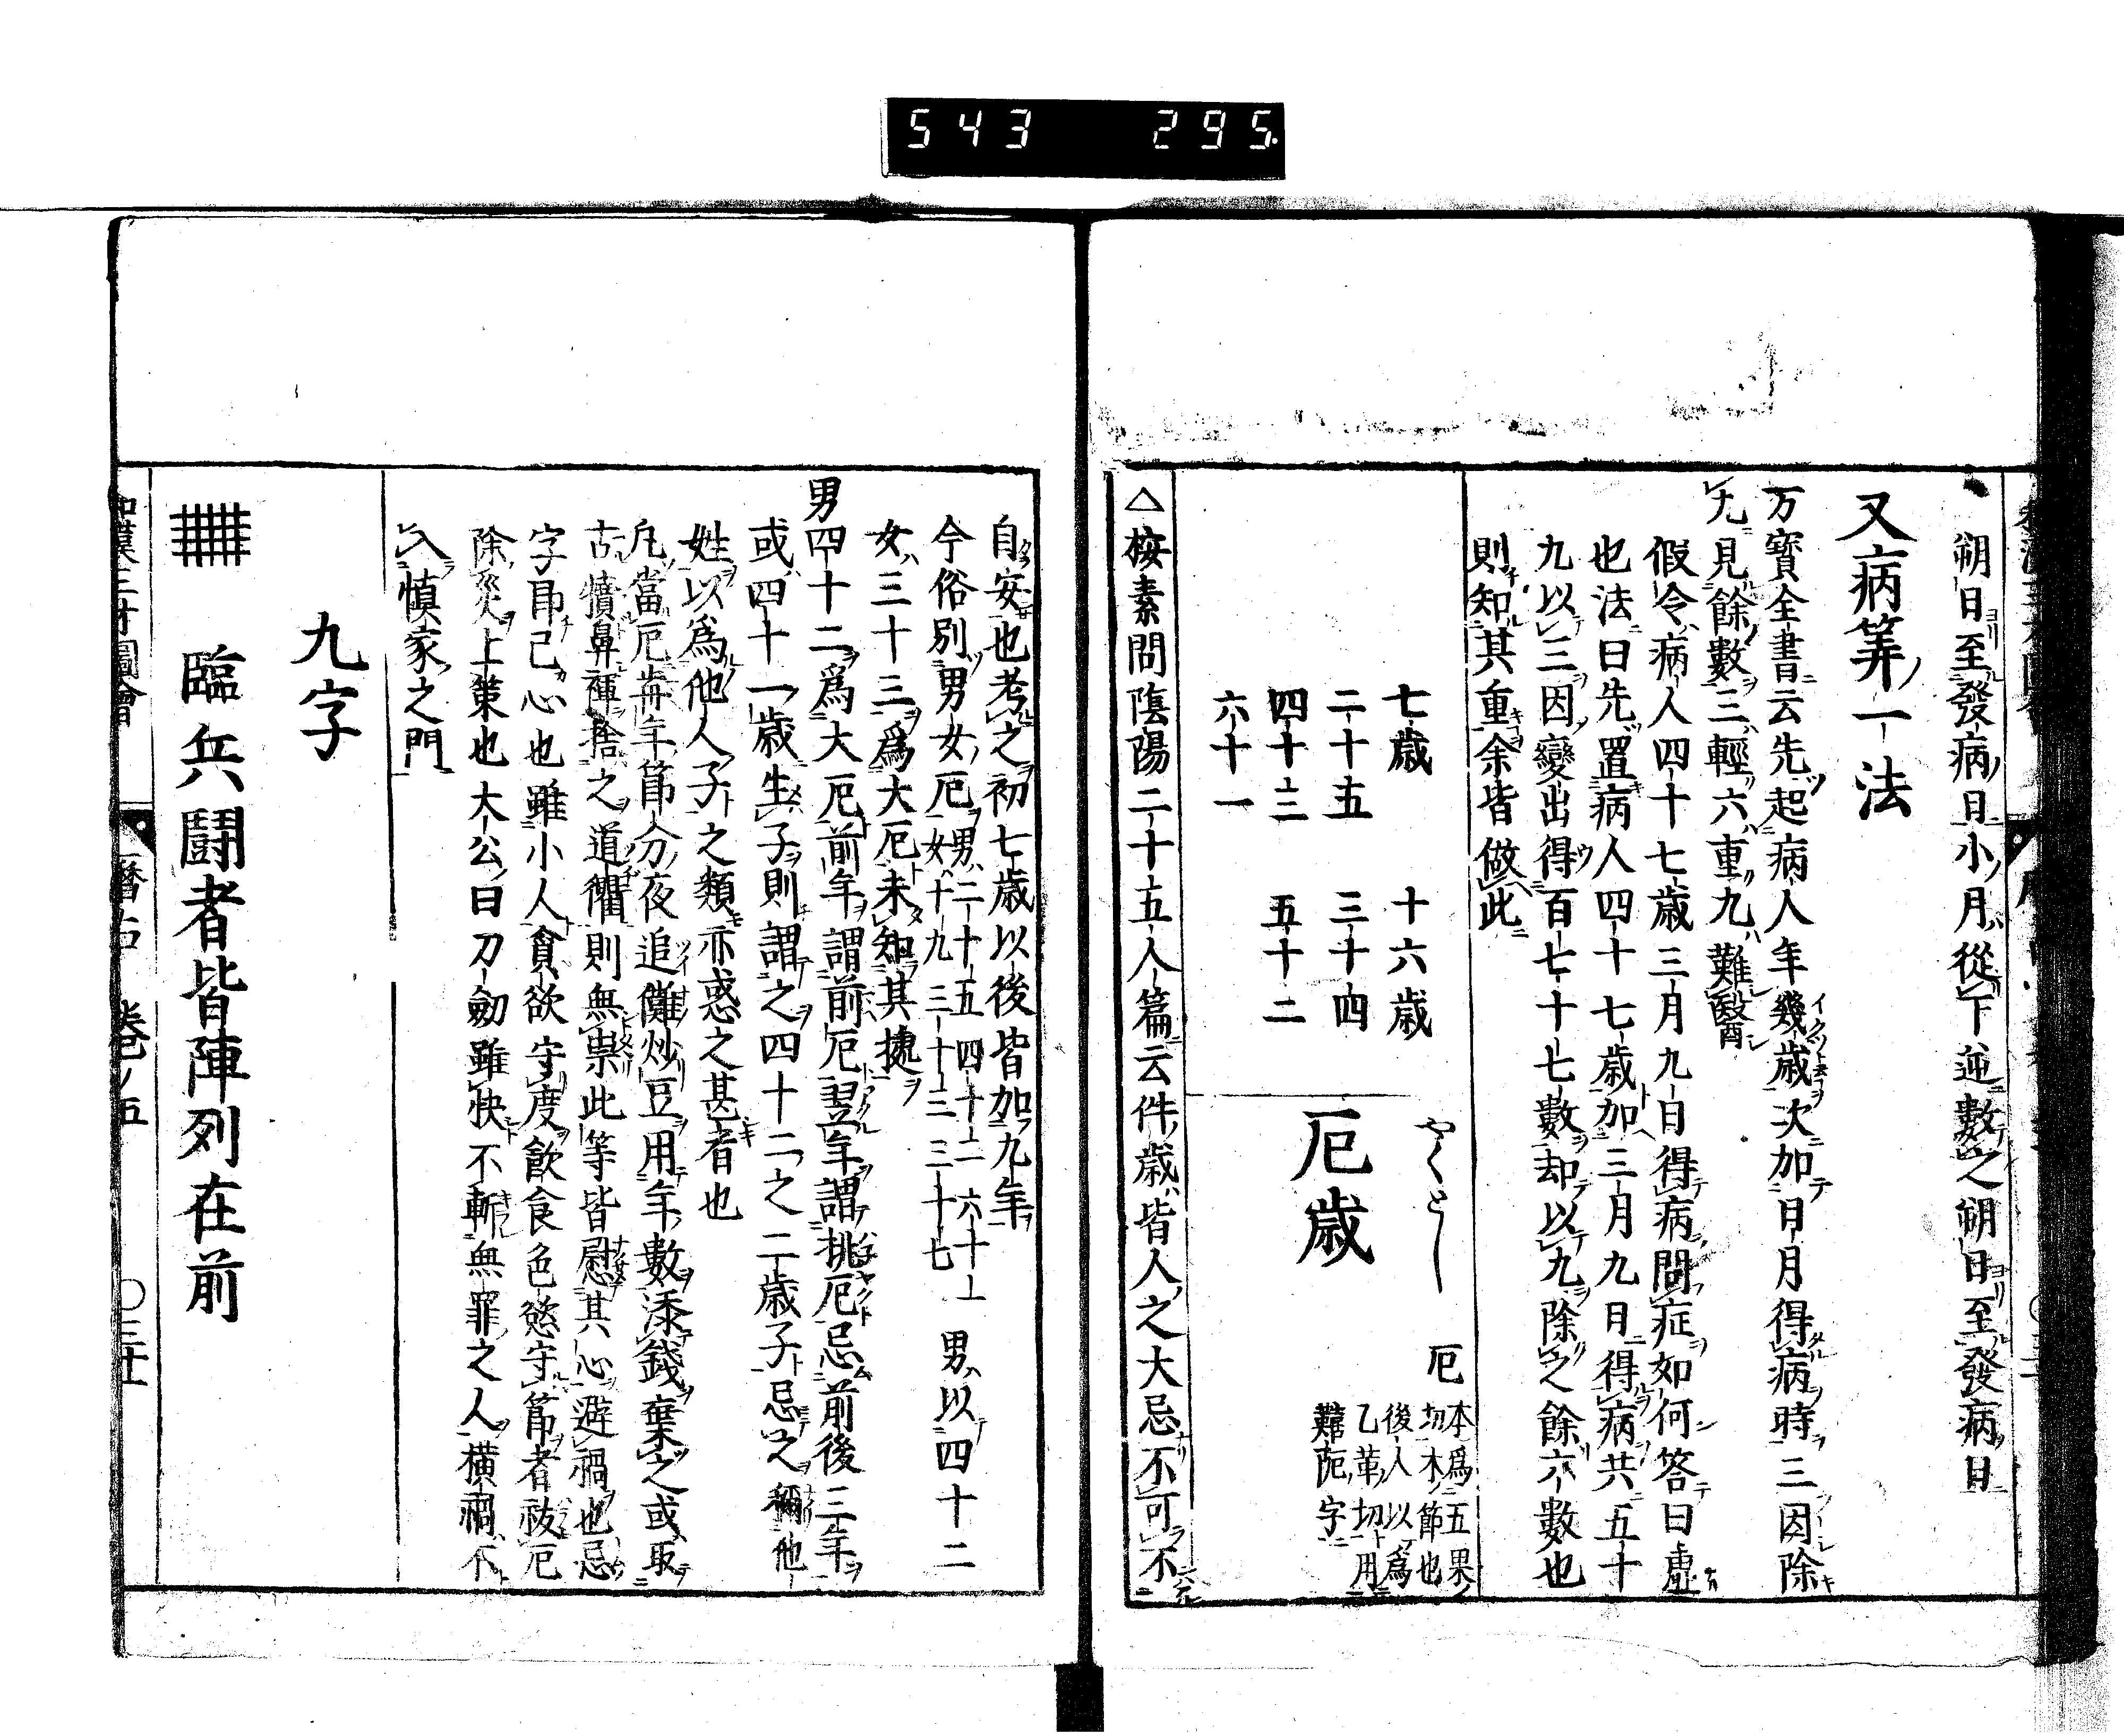 543 295.
朔日至發病日小月從下逆數之朔日至發病日
又病筭一法
万寳全書云先起病人年幾歳次加日月得病時三因除
九見餘數三輕六重九難醫
假令病人四十七歳三月九日得病問症如何答曰虛
也法曰先置病人四十七歳加三月九日得病共五十
九以三因變出得百七十七數却以九除之餘六數也
則知其重余皆做此
やくとし
厄歳
厄
本爲五果
切木節也
後人以爲
乙革切用
難阨字
七歳 十六歳
二十五 三十四
四十三 五十二
六十一
△桉素問陰陽二十五人篇云件歳皆人之大忌不可不
自安也考之初七歳以後皆加九年
今俗別男女厄男二十五 四十二 六十一 女十九 三十三 三十七 男以四十二
女三十三爲大厄未知其據
男四十二爲大厄前年謂前厄翌年謂挑厄忌前後三年
或四十一歳生子則謂之四十二之二歳子忌之稱他
姓以爲他人子之類亦惑之甚者也
凡當厄歳年節分夜追儺炒豆用年數添錢棄之或取
古犢鼻褌捨之道衢則無祟此等皆慰其心避禍也忌
字即己心也雖小人貪欲守度飲食色慾守節者祓厄
除災上策也太公曰刀劔雖快不斬無罪之人横禍不
入慎家之門
九字
臨兵闘者皆陣列在前
和漢三才圖會 曆占 卷ノ五 〇三十